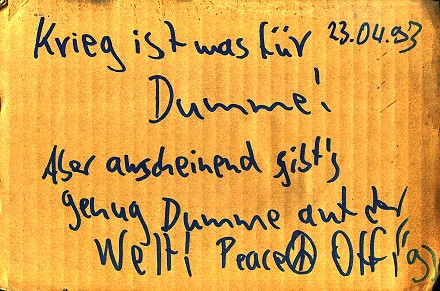 Krieg ist was für 23.04.93
Dumme!
Aber anscheinend gibt's
genug Dumme auf der
Welt! Peace Offi